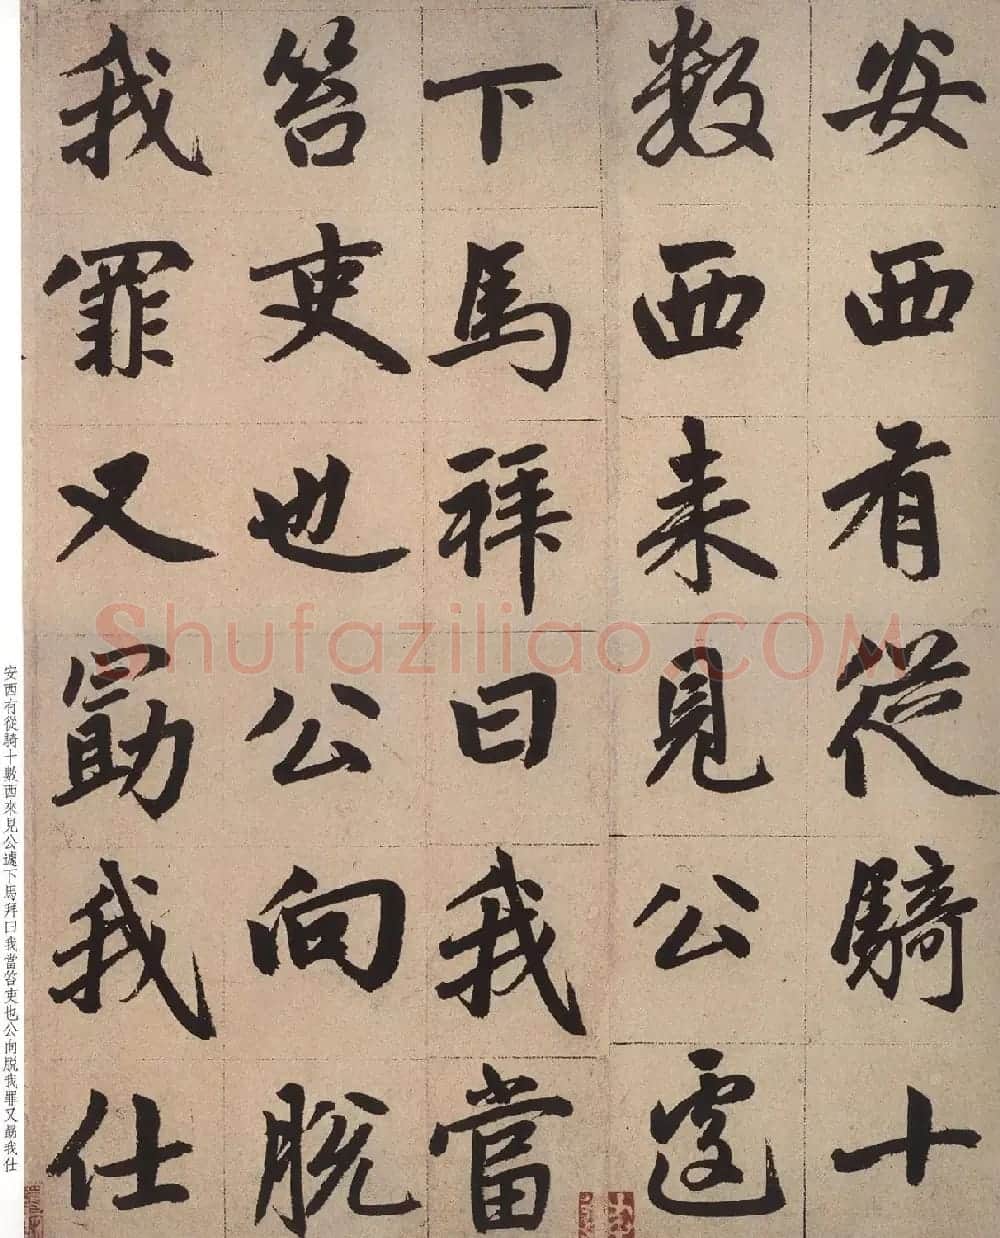 安西有從騎十
數西來見公遽
下馬拜曰我當
笞吏也公向脫
我罪又勗我仕
安西有從騎十數西來見公遽下馬拜曰我當笞吏也公向脫我罪又勗我仕
Shufaziliao.COM